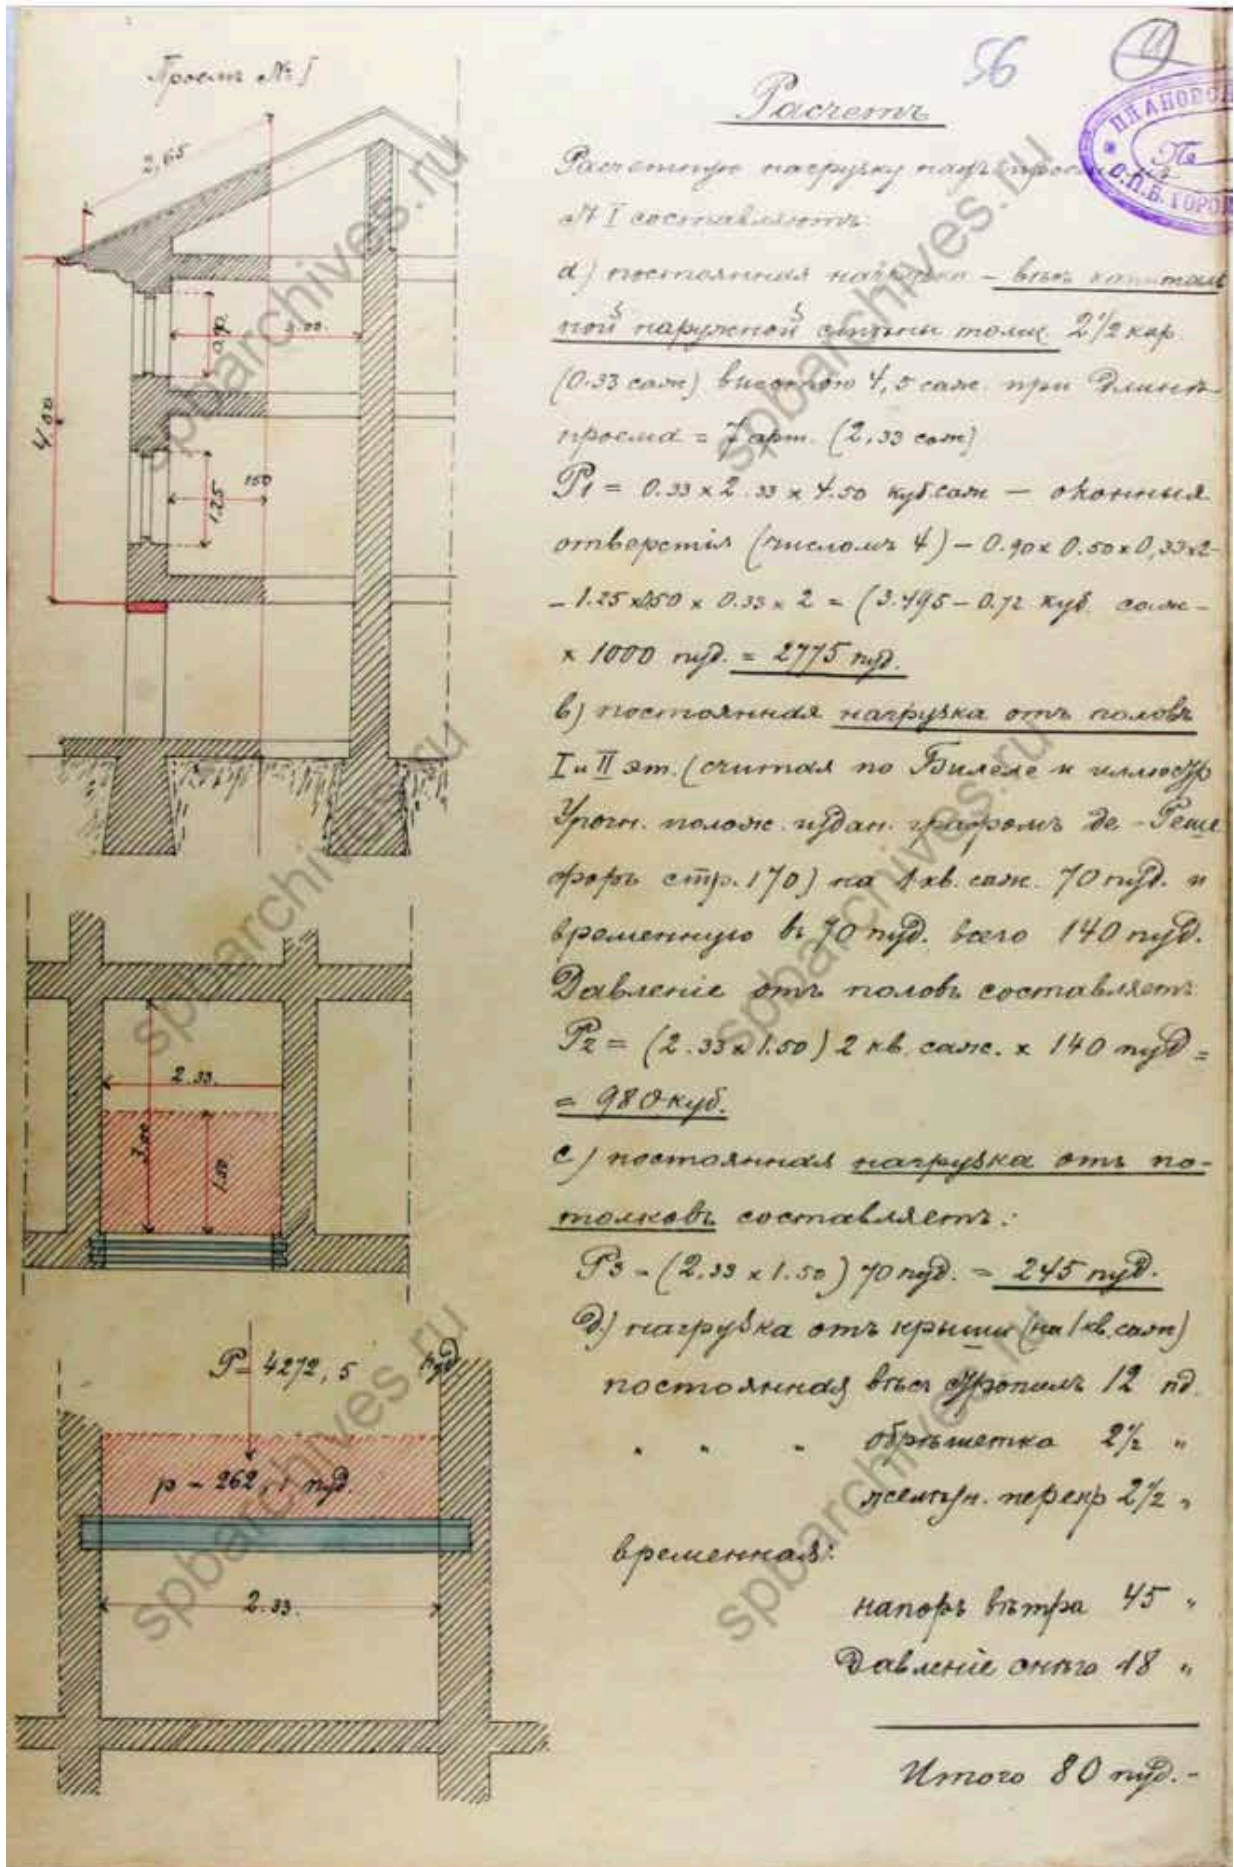 Проемъ №I
2,65
0,90
3.00
4,00
1.25
150
2.33.
3,00
1.50
P=4272,5 пуд.
p-262,1 пуд.
2.33.
56
11
ПЛАНОВО
С.П.Б. ГОРО
Расчетъ
Расчетную нагрузку надъ
№ I составляютъ:
а) постоянная нагрузка – вѣсъ капиталь
ной наружной стѣны толщ. 2 1/2 кир.
(0.33 саж) высотою 4,5 саж. при длинѣ
проема = 7 арш. (2,33 саж)
P1 = 0.33 x 2.33 x 4.50 куб. саж — оконныя
отверстія (числомъ 4) – 0.90 x 0.50 x 0,33 x 2 –
– 1.25 x 050 x 0.33 x 2 = (3.495 – 0.72 куб. саж –
x 1000 пуд. = 2775 пуд.
в) постоянная нагрузка отъ половъ
I и II эт. (считая по и иллюстр
Урочн. полож. издан. графомъ де-Роше
форъ стр. 170) на 1 кв. саж. 70 пуд. и
временную въ 70 пуд. всего 140 пуд.
Давленіе отъ половъ составляетъ
P2 = (2.33 x 1.50) 2 кв. саж. x 140 пуд =
= 980 куб.
с) постоянная нагрузка отъ по-
толковъ составляетъ:
P3 – (2.33 x 1.50) 70 пуд. = 245 пуд.
д) нагрузка отъ крыши (на 1 кв. саж)
постоянная вѣсъ стропилъ 12 пд.
" " " обрѣшетка 2 1/2 "
желѣзн. перекр 2 1/2 "
временная:
напоръ вѣтра 45 "
Давленіе снѣга 18 "
Итого 80 пуд. –
spbarchives.ru
spbarchives.ru
spbarchives.ru
spbarchives.ru
spbarchives.ru
spbarchives.ru